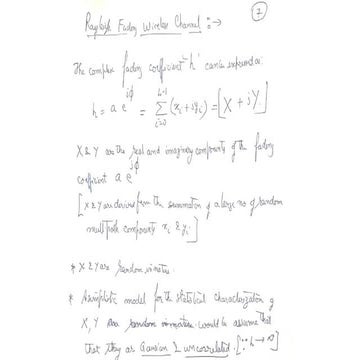 7
Rayleigh Fading Wireless Channel :→
The complex fading coefficient 'h' can be expressed as
h = a e^{jϕ} = Σ_{i=0}^{L-1} (x_i + jy_i) = [X + jY]
X & Y are the real and imaginary components of the fading
coefficient a e^{jϕ}
[X & Y are derived from the summation of a large no of random
multipath components x_i & y_i]
* X & Y are random in nature
* A simplistic model for the statistical characterization of
X, Y are random in nature would be assume that
that they are Gaussian & uncorrelated. [∵ L → ∞]